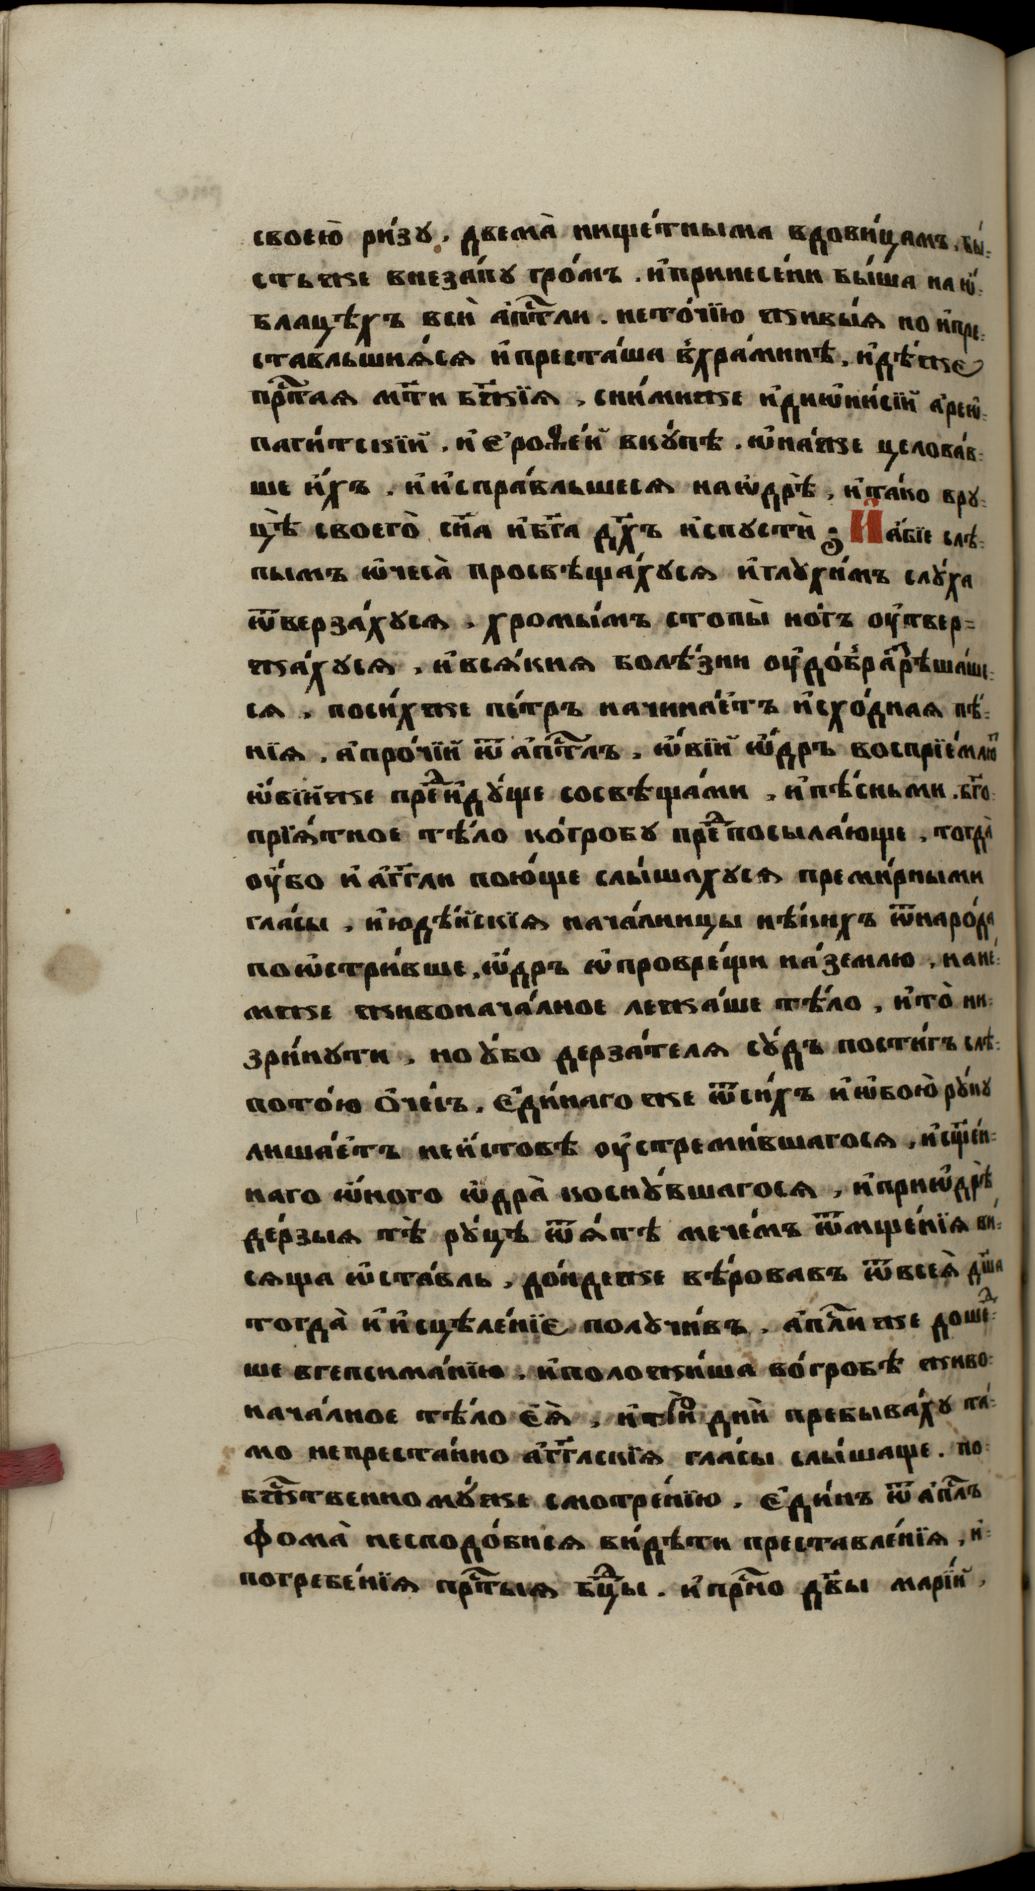 своею̀ ри́зу, двема̀ нище́тныма вдови́цамъ. бы́-
сть же внеза́пу гро́мъ. и҆принесе́ни бы́ша на ѡ҆́-
блацѣхъ вси̑ а҆пⷭ҇тли. нето́чїю живы́ѧ но и҆пре-
ставльшиѧ́сѧ и҆преста́ша в̾хра́минѣ, и҆дѣ́же
прⷭ҇таѧ мт҃и бж҃їѧ, сни́миже и҆дїѡни́сїй а҆реѡ-
паги́тскїй. и҆ є҆роѳе́й вкꙋ́пѣ. ѡ҆на́же целова́в-
ше и҆́хъ. и҆ и҆спра́вльшесѧ наѻдрѣ̀, и҆та́ко врꙋ-
цѣ̀ своего̀ сн҃а и҆бг҃а дх҃ъ и҆спꙋстѝ ; И҆ а҆́бїе слѣ-
пымъ ѡ҆чеса̀ просвѣща́хꙋсѧ и҆глꙋхи́мъ слꙋ́ха
ѿверза́хꙋсѧ, хромы́мъ стопы̀ но́гъ ѹ҆твер-
жа́хꙋсѧ, и҆всѧ́киѧ болѣ́зни ѹ҆до́б̾разрѣша́ше-
сѧ, посихже пе́тръ начина́етъ и҆схо́днаѧ пѣ́-
нїѧ, а҆про́чїй ѿ а҆пⷭ҇тлъ, ѡ҆́вїй ѡ҆́дръ воспрїе́млют
ѡ҆́вїйже предидꙋ́ще сосвѣща́ми, и҆пѣ́сньми. бг҃о-
прїѧ́тное тѣ́ло ко́гробꙋ предпосыла́юще, тогда̀
ѹ҆́бо и҆ а҆́гг҃ли пою́ще слы́шахꙋсѧ преми́рными
гла́сы, и҆юдѣ́йскїѧ нача́лницы нѣ́кихъ ѿнаро́да
поѡ҆стри́вше, ѡ҆́дръ ѡ҆проврещи на́землю, на не́-
мже живонача́лное лежа́ше тѣ́ло, и҆то̀ ни-
зри́нꙋти, но ꙋ҆́бо дерза́телѧ сꙋ́дъ пости́гъ слѣ-
пото́ю ѻ҆че́съ, є҆ди́наго же ѿси́хъ и҆ ѡ҆бою̀ рꙋ́кꙋ
лиша́етъ неи҆стовѣ ѹ҆стреми́вшагосѧ, и҆сщ҃е́н-
наго ѻ҆́ного ѻ҆дра̀ коснꙋ́вшагосѧ, и҆приѻ҆дрѣ̀
де́рзыѧ тѣ̀ рꙋ́цѣ ѿѧ́тѣ мече́мъ ѿмще́нїѧ ви́-
сѧща ѡ҆ста́вль, до́ндеже вѣ́ровавъ ѿвсеѧ̀ дш҃а
тогда̀ и҆ и҆сцѣле́нїе полꙋчи́въ, а҆пⷭ҇ли же дошед-
ше вгепсима́нїю, и҆положи́ша во́гробѣ живо-
нача́лное тѣ́ло єѧ̀, и҆ три́ дни̑ пребыва́хꙋ та́-
мо непреста́нно а҆́гг҃лскїѧ гла́сы слы́шаще. по-
бжⷭ҇твенномꙋ́же смотре́нїю, є҆ди́нъ ѿ а҆пⷭ҇лъ
фома̀ несподо́бисѧ ви́дѣти преставле́нїѧ, и҆-
погребе́нїѧ прⷭ҇тыѧ бцⷣы. и҆прⷭ҇но дв҃ы марїи̑,